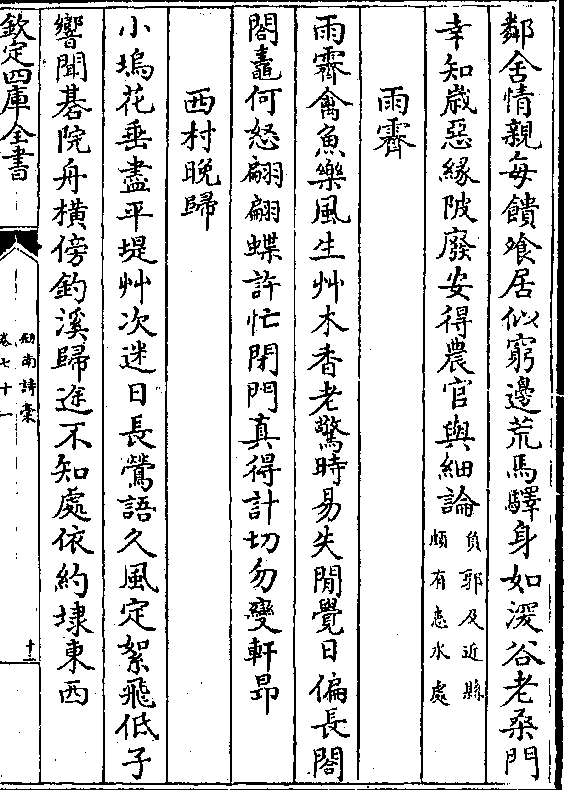 鄰舍情親每饋飧居似窮邊荒馬驛身如深谷老桑門
幸知歳惡緣陂廢安得農官與細論
負郭及近縣
頗有患水處
雨霽
雨霽禽魚樂風生艸木香老驚時易失閒覺日偏長閣
閣鼃何怒翩翩蝶許忙閉門真得計切勿變軒昻
西村晚歸
小塢花垂盡平堤艸次迷日長鶯語久風定絮飛低子
響聞碁院舟橫傍釣溪歸途不知處依約埭東西
欽定四庫全書
劍南詩稾
卷七十一
十一